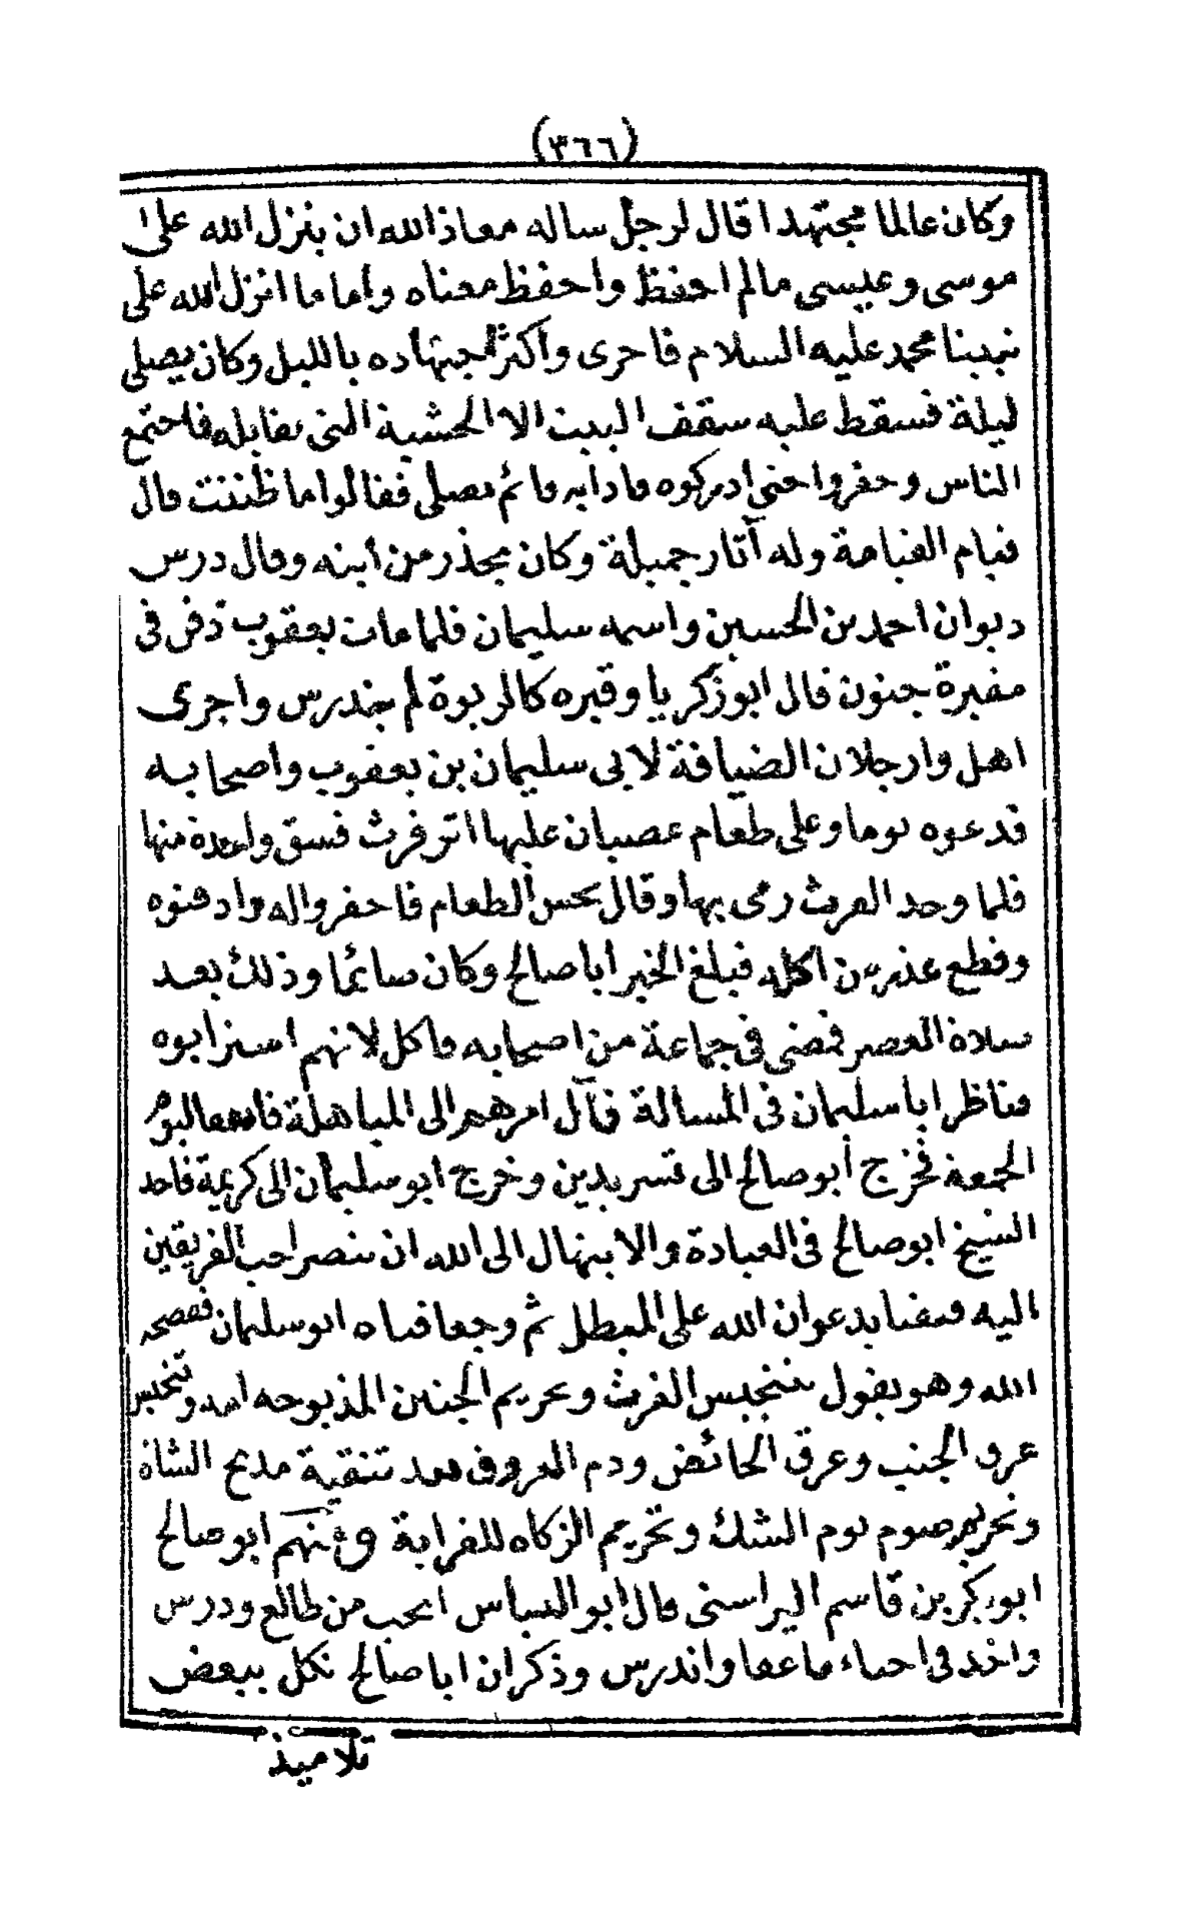 (٣٦٦)
وكان عالما مجتهدا قال لرجل ساله معاذ الله ان ينزل الله على
موسى وعيسى مالم احفظ واحفظ معناه واما ما انزل الله على
نبينا محمد عليه السلام فاحرى واكثر اجتهاده بالليل وكان يصلى
ليلة فسقط عليه سقف البيت الا الخشبة التى تقابله فاجتمع
الناس وحفروا حتى ادركوه فاذا به قائم يصلى فقالوا ما ظننت قال
قيام القيامة وله آثار جميلة وكان يحذر من ابنه وقال درس
ديوان احمد بن الحسين واسمه سليمان فلما مات يعقوب دفن فى
مقبرة جنون قال ابو زكريا وقبره كالربوة لم يندرس واجرى
اهل وارجلان الضيافة لابى سليمان بن يعقوب واصحابه
فدعوه يوما وعلى طعام عصبان عليها اثر فرث فسق واحدة منها
فلما وجد الفرث رمى بها وقال نجس الطعام فاحفروا له وادفنوه
وقطع عذر من اكله فبلغ الخبر ابا صالح وكان صائما وذلك بعد
صلاة العصر فمضى فى جماعة من اصحابه فاكل لانهم استرابوه
فناظر ابا سليمان فى المسالة فآل امرهم الى المباهلة فاتفقا ليوم
الجمعة فخرج أبو صالح الى تسريدين وخرج ابو سليمان الى كريمة فاخذ
الشيخ ابو صالح فى العبادة والابتهال الى الله ان ينصر احب الفريقين
اليه وبقيا يدعوان الله على المبطل ثم وجعا فتاه ابو سليمان ففضحه
الله وهو يقول بتنجيس الفرث وتحريم الجنين المذبوحة امه وتنجيس
عرق الجنب وعرق الحائض ودم العروق بعد تنقية مذبح الشاة
وتحريم صوم يوم الشك وتحريم الزكاه للقرابة ومنهم ابو صالح
ابو بكر بن قاسم اليراسنى قال ابو العباس ايحب من طالع ودرس
واخذ فى احياء ما عفا واندرس وذكر ان ابا صالح نكل ببعض
تلاميذ